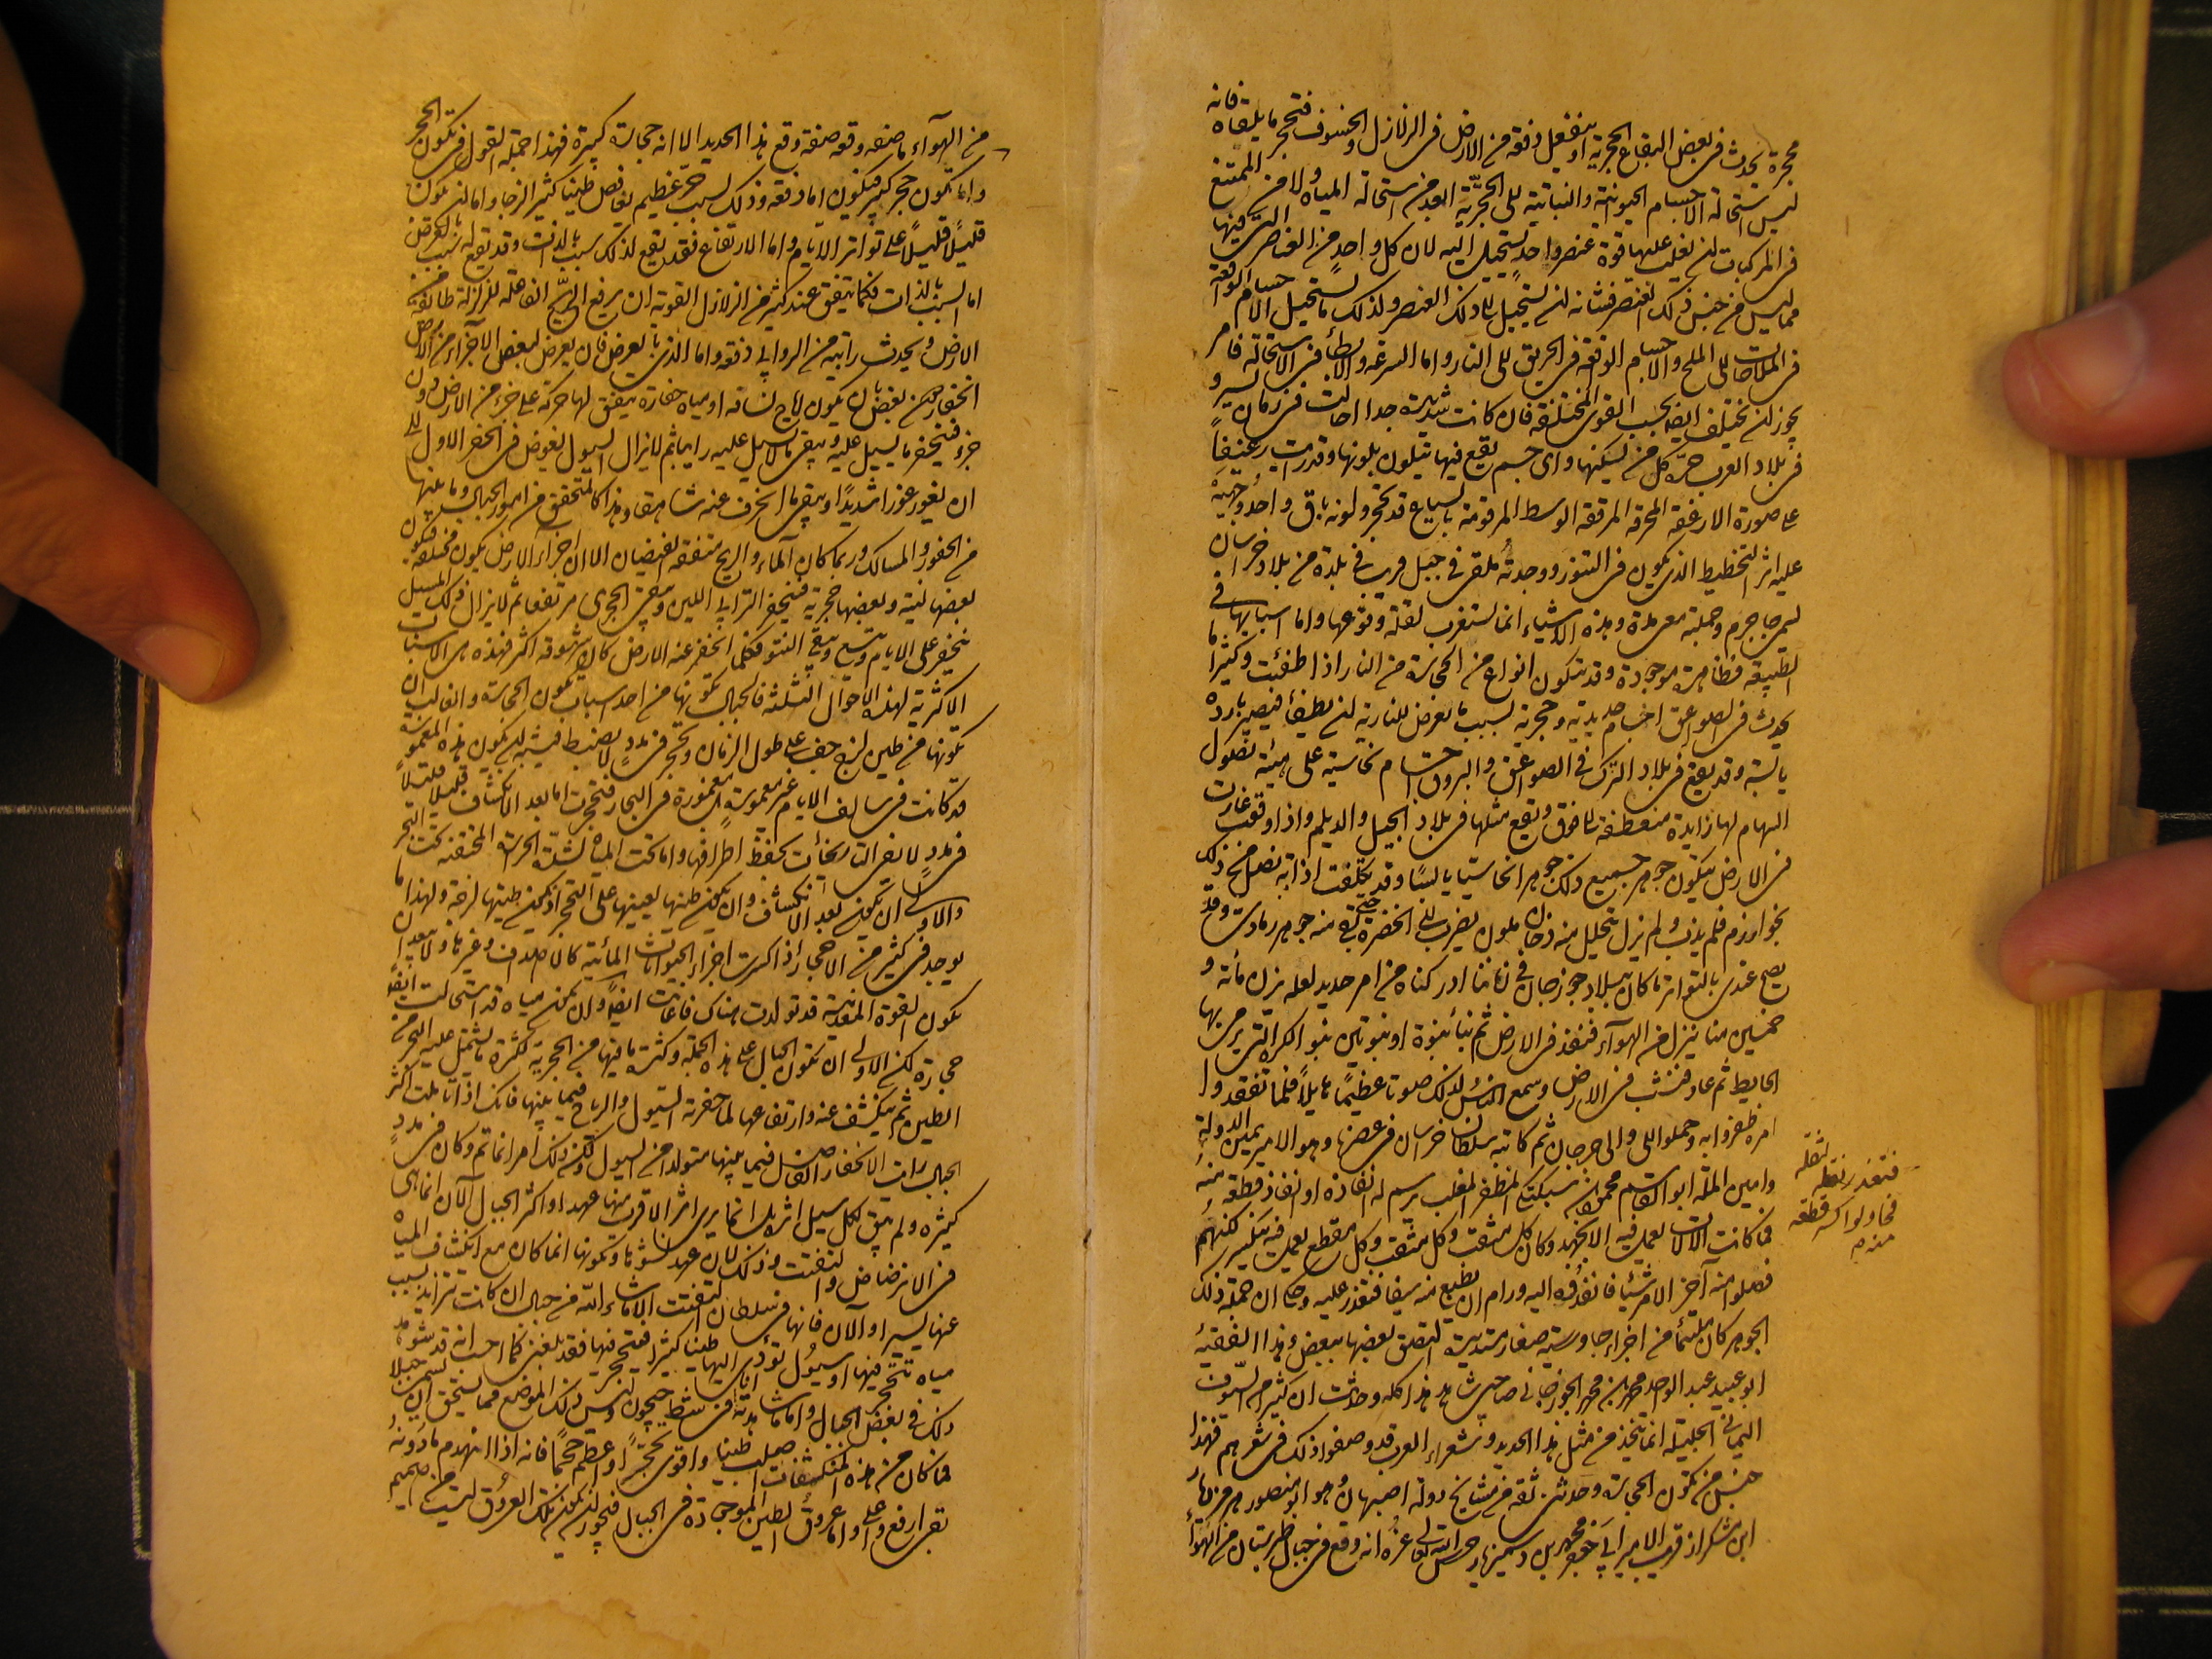 محجرة تحدث فى بعض البقاع الحجرية او ينفصل دفعة من الارض فى الزلازل والخسوف فتحجر ما يلقاه فانه
ليس استحالة الاجسام الحيوانية والنباتية الى الحجرية ابعد من استحالة المياه ولا من الممتنع
فى المركبات ان تغلب عليها قوة عنصر واحد يستحيل اليه لان كل واحد من العناصر التى فيها
مما ليس من جنس ذلك العنصر فشانه ان يستحيل الى ذلك العنصر ولذلك ما تستحيل الاجسام الواقعة
فى الملاحات الى الملح والاجسام الواقعة فى الحريق الى النار واما السرعة والابطاء فى الاستحالة فامر
يجوز ان يختلف ايضا بحسب القوى المختلفة فان كانت شديدة جدا احالت فى زمان يسير و
فى بلاد العرب حرة كل من يسكنها واى جسم يقع فيها يتلون بلونها وقد رايت رغيفا
على صورة الارغفة المحرقة المرققة الوسط المرقومة بالسباع قد تحجر ولونه باق واحد وجهيه
عليه اثر التخطيط الذى يكون فى التنور ووجدته ملقى فى جبل قريب فى بلدة من بلاد خراسان
يسمى جاجرم وحملته معى مدة وهذه الاشياء انما تستغرب لقلة وقوعها واما اسبابها فى
الطبيعة فظاهرة موجودة وقد يتكون انواع من الحجارة من النار اذا اطفئت وكثيرا ما
يحدث فى الصواعق اجسام حديدية وحجرية بسبب ما يعرض للنارية ان تطفأ فيصير باردة
يابسة وقد يقع فى بلاد الترك فى الصواعق والبروق اجسام نحاسية على هيئة نصول
السهام لها زايدة منعطفة الى فوق وتقع مثلها فى بلاد الجيل والديلم واذا وقعت غارت
فى الارض يتكون جوهر جميع ذلك جوهرا نحاسيا يابسا وقد تكلفت اذابة نصل من ذلك
بخوارزم فلم يذب ولم يزل يتحلل منه دخان ملون يضرب الى الخضرة حتى بقى منه جوهر رمادى وقد
صح عندى بالتواتر ما كان ببلاد جوزجان فى زماننا ادركناه من امر حديد لعله يزن مائة و
خمسين منا ينزل من الهواء فنفذ فى الارض ثم نبا نبوة او نبوتين نبو الكرة التى يرمى بها
الحايط ثم عاد فنشب فى الارض وسمع الناس لذلك صوتا عظيما هايلا فلما تفقدوا
امره ظفروا به وحملوا الى والى جرجان ثم كاتبه سلطان خراسان فى عصرنا وهو الامير يمين الدولة
وامين الملة ابو القاسم محمود بن سبكتكين المظفر المغلب يرسم له انفاذه او انفاذ قطعة منه
فتعذر نقله لثقله
فحاولوا كسر قطعة
منه صح
فما كانت الالات تعمل فيه الا بجهد وكان كل مثقب وكل مقطع يعمل فيه ينكسر لكنهم
فصلوا منه آخر الامر شيئا فانفذوه اليه ورام ان يطبع منه سيفا فتعذر عليه وحكى ان جملة ذلك
الجوهر كان ملتئما من اجزاء جاورسية صغار مستديرة التصق بعضها ببعض وهذا الفقيه
ابو عبيد عبد الواحد بن محمد الجوزجانى صاحبى شاهد هذا كله وحدثت ان كثيرا من السيوف
اليمانى الجليلة انما تتخذ من مثل هذا الحديد وشعراء العرب قد وصفوا ذلك فى شعرهم فهذا
جنس من تكون الحجارة وحدثنى ثقة من مشايخ دولة اصبهان وهو ابو منصور هرمزديار
ابن مشكراز قريب الامير ابى جعفر محمد بن دشمنزيار حرس الله تعالى عزه انه وقع فى جبال طبرستان من الهواء
من الهواء ما صفة وقعه صفة وقع هذا الحديد الا انه حجارة كبيرة فهذا جملة القول فى تكون الحجر
واما تكون حجر كبير فيكون اما دفعة وذلك بسبب حر عظيم يغافص طينا كثيرا لزجا واما ان يكون
قليلا قليلا على تواتر الايام واما الارتفاع فقد يقع لذلك سبب بالذات وقد يقع له سبب بالعرض
اما السبب بالذات فكما يتفق عند كثير من الزلازل القوية ان يرفع الريح الفاعلة للزلزلة طائفة من
الارض ويحدث رابية من الروابى دفعة واما الذى بالعرض فان يعرض لبعض الاجزاء من الارض
انحفار دون بعض بان يكون رياح نسافة او مياه حفارة يتفق لها حركة على جزء من الارض دون
جزء فيتحفر ما يسيل عليه ويبقى ما لا يسيل عليه رابيا ثم لا يزال السيول يغوص فى الحفر الاول الى
ان يغور غورا شديدا ويبقى ما انحرف عنه شاهقا وهذا كالمتحقق من امور الجبال وما بينها
من الحفور والمسالك وربما كان الماء والريح متفقى الفيضان الا ان اجزاء الارض يكون مختلفة فيكون
بعضها لينة وبعضها حجرية فينحفر الترابى اللين ويبقى الحجرى مرتفعا ثم لا يزال ذلك المسيل
ينحفر على الايام ويتسع ويبقى النتو فكلما انحفر عنه الارض كان شهوقه اكثر فهذه هى الاسباب
الاكثرية لهذه الاحوال الثلثة فالجبال تكونها من احد اسباب تكون الحجارة والغالب ان
تكونها من طين لزج جف على طول الزمان وتحجر فى مدد لا يضبط فيشبه ان يكون هذه المعمورة
قد كانت فى سالف الايام غير معمورة مغمورة فى البحار فتحجرت اما بعد الانكشاف قليلا قليلا
فى مدد لا يفى التاريخات بحفظ اطرافها واما تحت المياه لشدة الحرارة المحتقنة تحت البحر
والاولى ان يكون بعد الانكشاف وان يكون طينها يعينها على التحجر اذ يكون طينها لزجة ولهذا ما
يوجد فى كثير من الاحجار اذا كسرت اجزاء الحيوانات المائية كالاصداف وغيرها ولا يبعد ان
يكون القوة المعدنية قد تولدت هناك فاعانت ايضا وان يكون مياه قد استحالت ايضا
حجارة لكن الاولى ان تكون الجبال على هذه الجملة وكثرة ما فيها من الحجرية لكثرة ما يشتمل عليه البحر من
الطين ثم ينكشف عنه وارتفاعها لما حفرته السيول والرياح فيما بينها فانك اذا تاملت اكثر
الجبال رايت الانحفار الفاصل فيما بينها متولدا من السيول ولكن ذلك امر انما تم وكان فى مدد
كثيرة ولم يبق لكل سيل اثره بل انما يرى اثر الاقرب منها عهدا واكثر الجبال الان انما هى
فى الارضاض والتفتت وذلك لان عهد نشوها وتكونها انما كان مع انكشاف المياه
عنها يسيرا والآن فانها فى سلطان التفتت الا ما شاء الله من جبال ان كانت تتزايد بسبب
مياه تتحجر فيها او سيول تؤدى اليها طينا كثيرا فيتحجر فيها فقد بلغنى كما احسب انه قد شوهد
ذلك فى بعض الجبال واما ما شاهدته انا فى شط جيحون وليس ذلك الموضع مما يستحق ان يسمى جبلا
فما كان من هذه المنكشفات اصلب طينا واقوى تحجرا واعظم حجما فانه اذا انهدم ما دونه
بقى ارفع واعلى واما عروق الطين الموجودة فى الجبال فيجوز ان يكون تلك العروق ليست من صميم